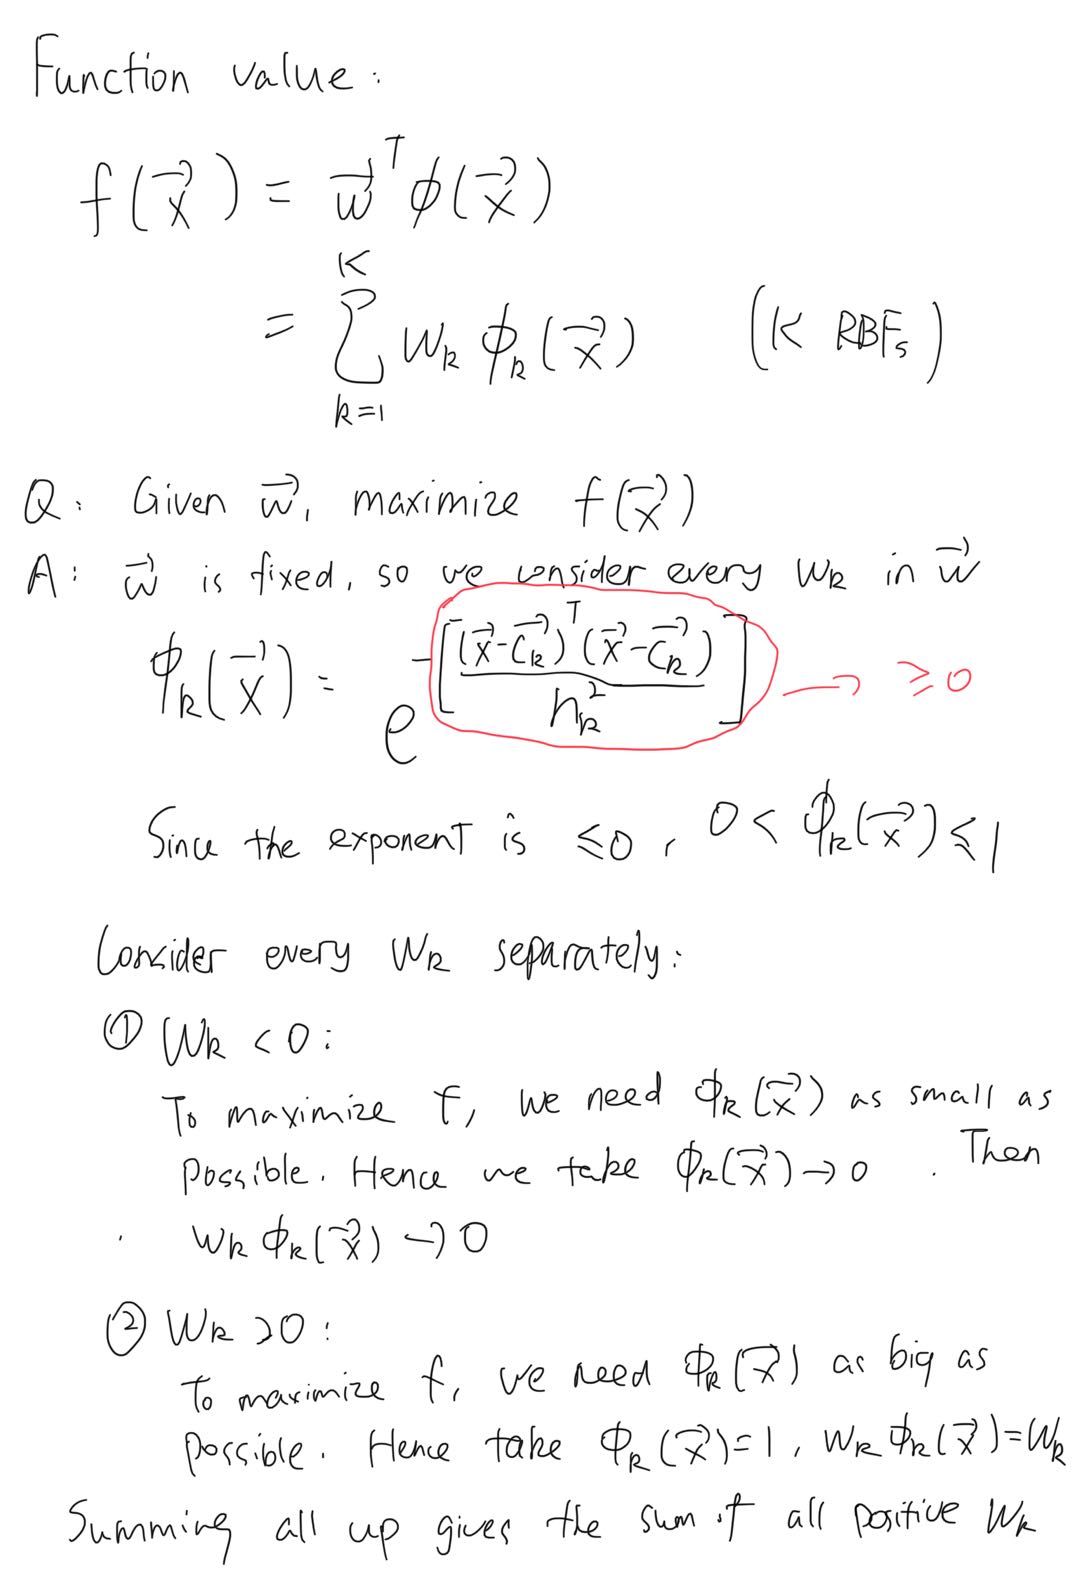 Function value:
f(x⃗) = w⃗ᵀ ϕ(x⃗)
= ∑_{k=1}^{K} w_k ϕ_k(x⃗) (K RBFs)
Q: Given w⃗, maximize f(x⃗)
A: w⃗ is fixed, so we consider every w_k in w⃗
ϕ_k(x⃗) = e^{-[(x⃗-c_k⃗)ᵀ(x⃗-c_k⃗) / h_k²]} → ≥0
Since the exponent is ≤0, 0 < ϕ_k(x⃗) ≤ 1
Consider every w_k separately:
① w_k < 0:
To maximize f, we need ϕ_k(x⃗) as small as
possible. Hence we take ϕ_k(x⃗) → 0. Then
w_k ϕ_k(x⃗) → 0
② w_k > 0:
To maximize f, we need ϕ_k(x⃗) as big as
possible. Hence take ϕ_k(x⃗)=1, w_k ϕ_k(x⃗)=w_k
Summing all up gives the sum of all positive w_k